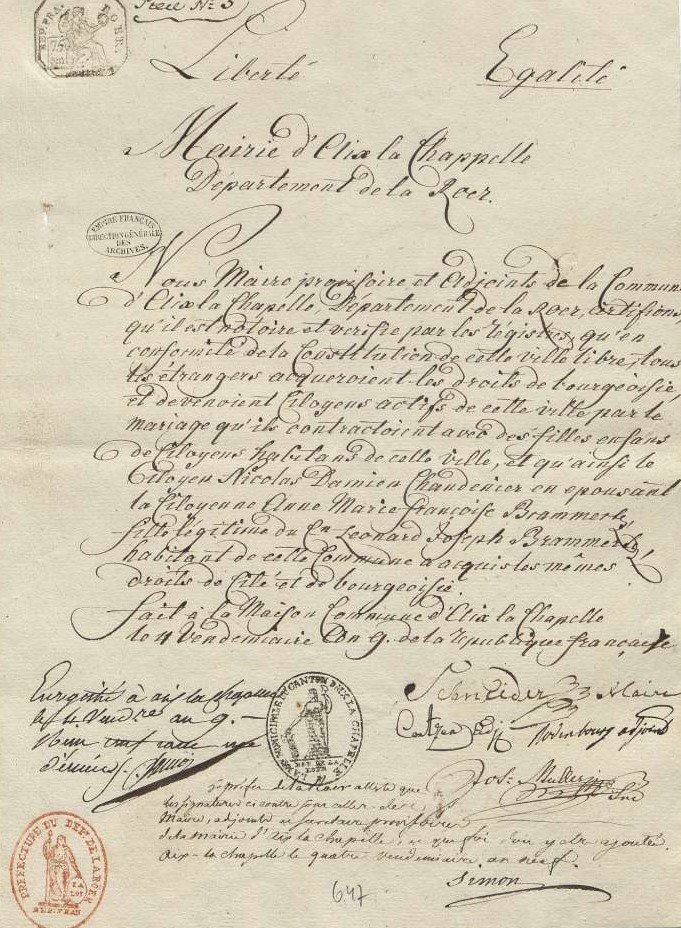 REP. FRA.
ROER.
75
Piece N.° 3
Liberté Egalité
Mairie d'Aix la Chappelle
Département de la Roer.
EMPIRE FRANÇAIS
DIRECTION GÉNÉRALE
DES
ARCHIVES.
Nous Maire provisoire et Adjoints de la Commune
d'Aix la Chapelle, Département de la Roer, certifions,
qu'il est notoire et verifié par les régistres, qu'en
conformité de la Constitution de cette ville libre, tous
les étrangers acqueroient les droits de bourgeoisie,
et devenoient Citoyens actifs de cette ville par le
mariage qu'ils contractoient avec des filles enfans
de Citoyens habitans de cette ville, et qu'ainsi le
Citoyen Nicolas Damien Chaudenier en epousant
la Citoyenne Anne Marie françoise Brammertz,
fille légitime du Cn Leonard Joseph Brammertz,
habitant de cette Commune a acquis les mêmes
droits de Cité et de bourgeoisie.
fait à la Maison Commune d'Aix la Chapelle
le 4 Vendemiaire An 9. de la République française
Enregistré à aix la Chapelle
le 4 Vendre an 9.
Simon
MUNICIPALE DU CANTON D'AIX LA CHAPELLE
DEP DE LA
ROER
Schneider Maire
adj
adjoint
Jos. Muller
Le préfet de la roer atteste que
les signatures ci contre sont celles des
Maire, adjoints et secretaire provisoires
de la mairie d'aix la chapelle, et que foi doit y etre ajoutée.
aix-la chapelle le quatre vendemiaire an neuf.
Simon
PREFECTURE DU DEPt. DE LA ROER
REP. FRAN
647